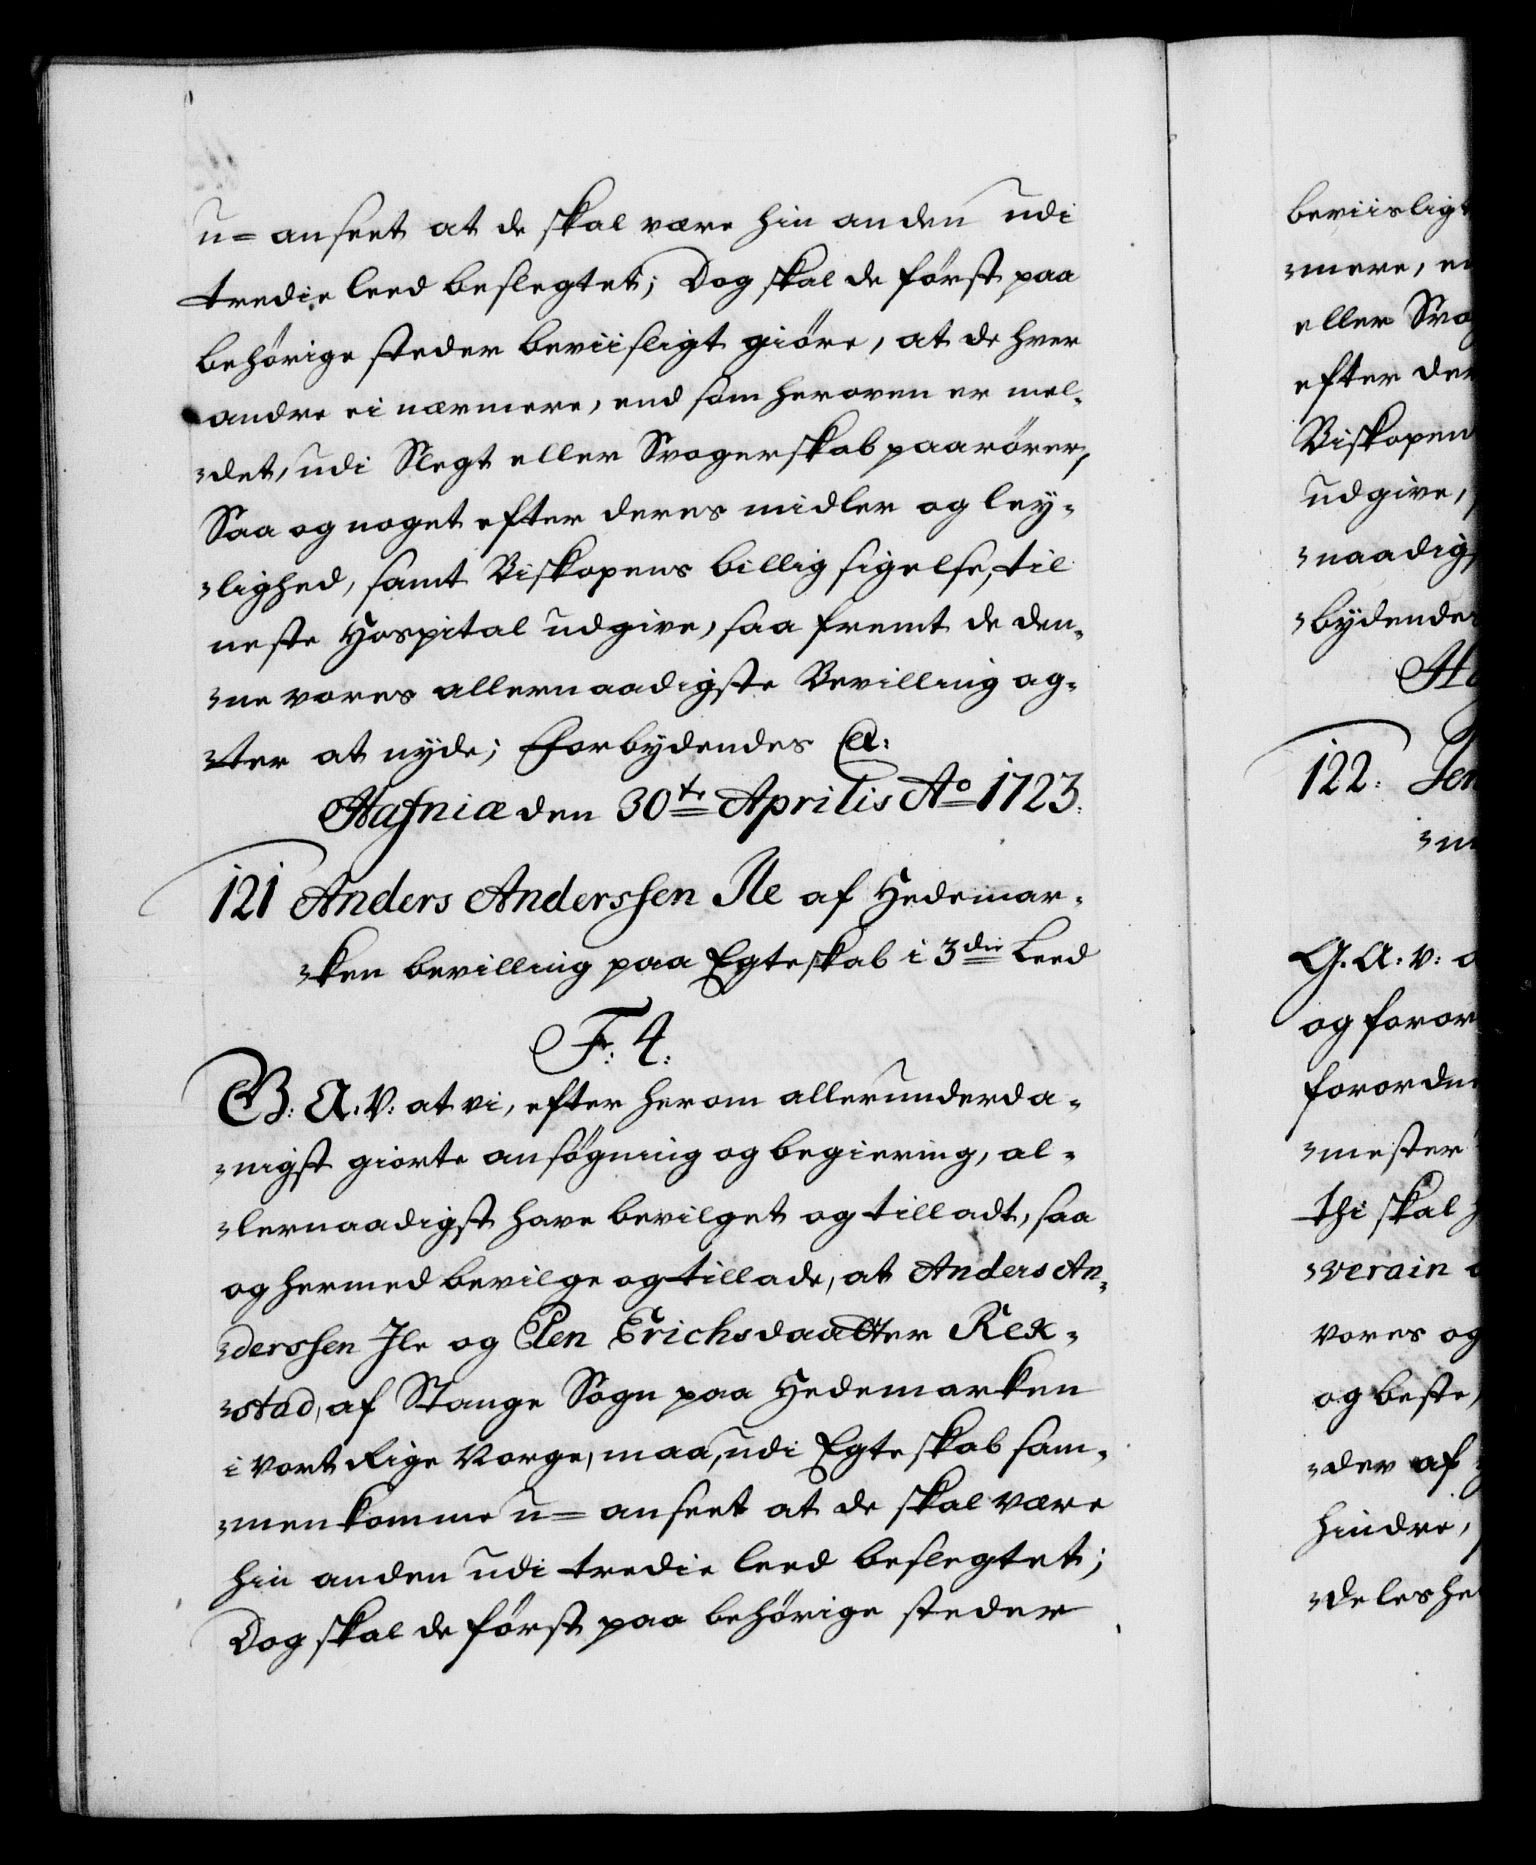 u=anseet at de skal være hin anden udi
tredie leed beslegtet; Dog skal de först paa
behörige steder beviisligt giöre, at de hver
andre ei nærmere, end som heroven er mel-
-det, udi Slegt eller Svogerskab paarörer,
Saa og noget efter deres midler og ley-
-lighed, samt Biskopens billig sigelse, til
neste Hospital udgive, saa fremt de den-
-ne vores allernaadigste Bevilling ag-
-ter at nyde; Forbydendes &:
Hafniæ den 30te Aprilis Ao 1723.
121 Anders Anderssen Ile af Hedemar-
-ken bevilling paa Egteskab i 3die Leed
Fr: 4:
G: A. V: at vi, efter herom allerunderda-
-nigst giorte ansögning og begiering, al-
-lernaadigst have bevilget og tilladt, saa
og hermed bevilge og tillade, at Anders An-
-derssen Ile og Elen Erichsdaatter Rek-
-stad, af Stange Sogn paa Hedemarken
i vort Rige Norge, maa, udi Egteskab sam-
-menkomme u=anseet at de skal være
hin anden udi tredie leed beslegtet;
Dog skal de först paa behörige steder
beviisligt
-mere, en
eller Svog
efter der
Biskopen
udgive,
-naadig
-bydendes
Ha
122: Jen
G. A. v: a
og foror
forordn
-mester
thi skal h
-verain
vores og
og beste,
-der af
hindre,
-deles he